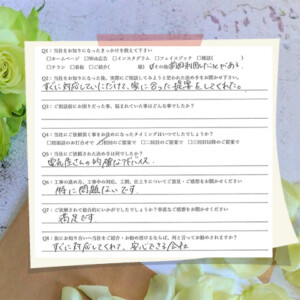 Q1：当社をお知りになったきっかけを教えて下さい
□ホームページ □Web広告 □インスタグラム □フェイスブック □雑誌( )
□チラシ □看板 □ご紹介( 様) その他 前回利用したことがある。
Q2：当社をお知りになった後、実際にご相談してみようと思われた決め手をお聞かせ下さい。
すぐに対応していただけて、家に合った提案をしてくれた。
Q3：ご相談前にお困りだった事、悩まれていた事はどんな事でしたか？
Q4：当社にご依頼頂く事をお決めになったタイミングはいつでしたでしょうか？
□初面談のお打合せで □初回目のご提案で □二回目のご提案で □三回目以降のご提案で
Q5：当社にご依頼された決め手は何でしたか？
電気屋さんの的確なアドバイス。
Q6：工事の進め方、工事中の対応、工期、仕上りについてご意見・ご感想をお聞かせください
特に問題ないです
Q7：ご依頼されて総合的にいかがでしたでしょうか？率直なご感想をお聞かせください
満足です
Q8：仮にお知り合いへ当社をご紹介・お勧め頂けるならば、何と言ってお勧めされますか？
すぐに対応してくれて、安心できる会社